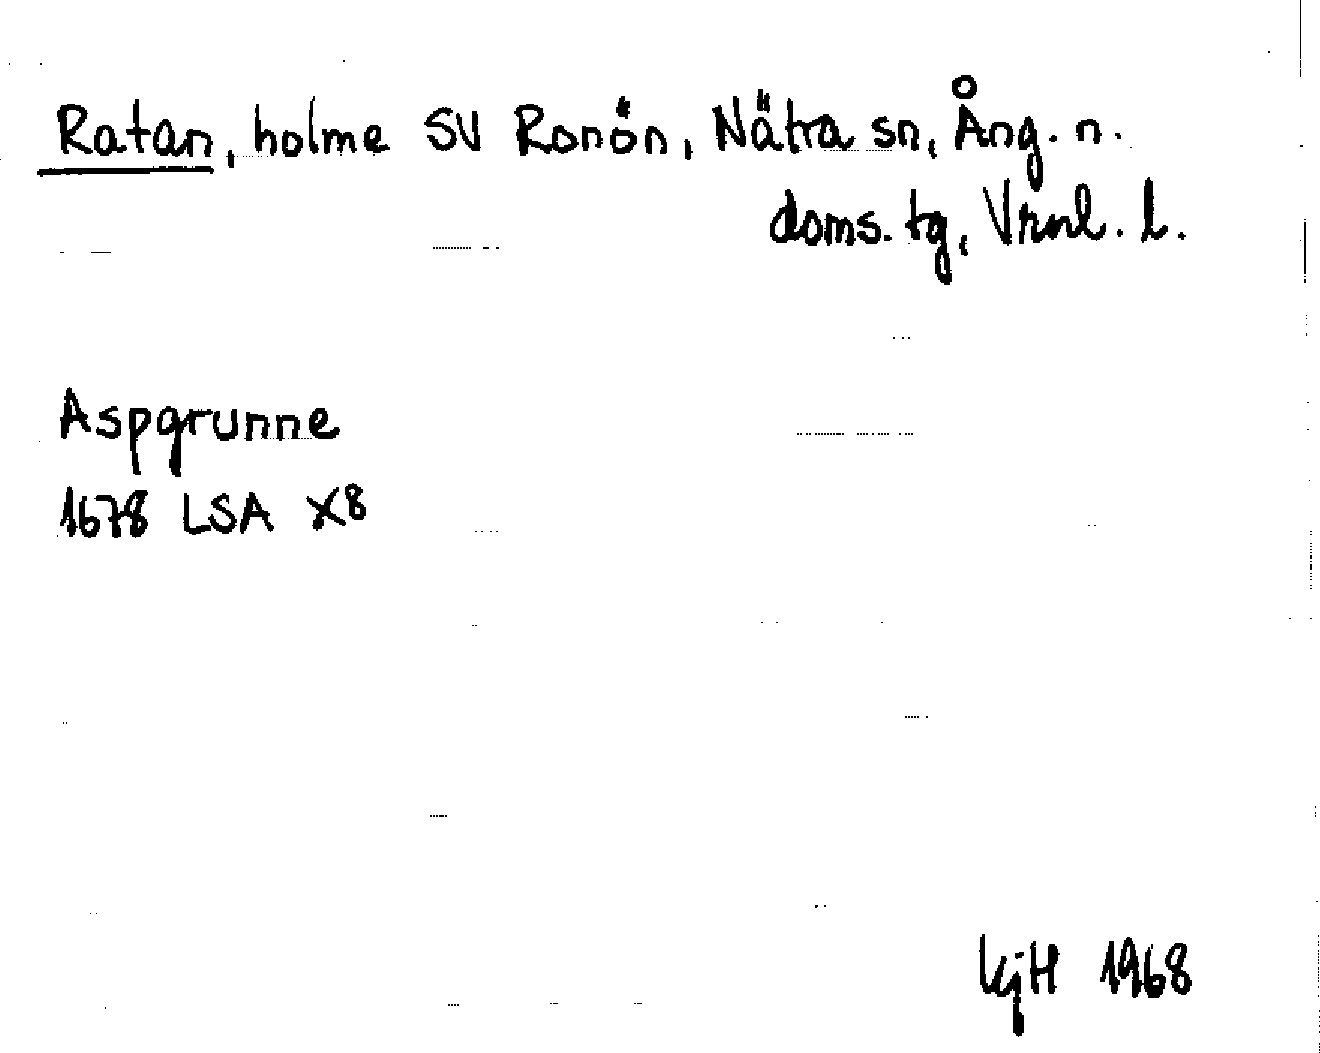 Ratan, holme SV Ronön, Nätra sn, Ång. n.
doms. tg, Vrnl. l.
Aspgrunne
1678 LSA X8
kjH 1968